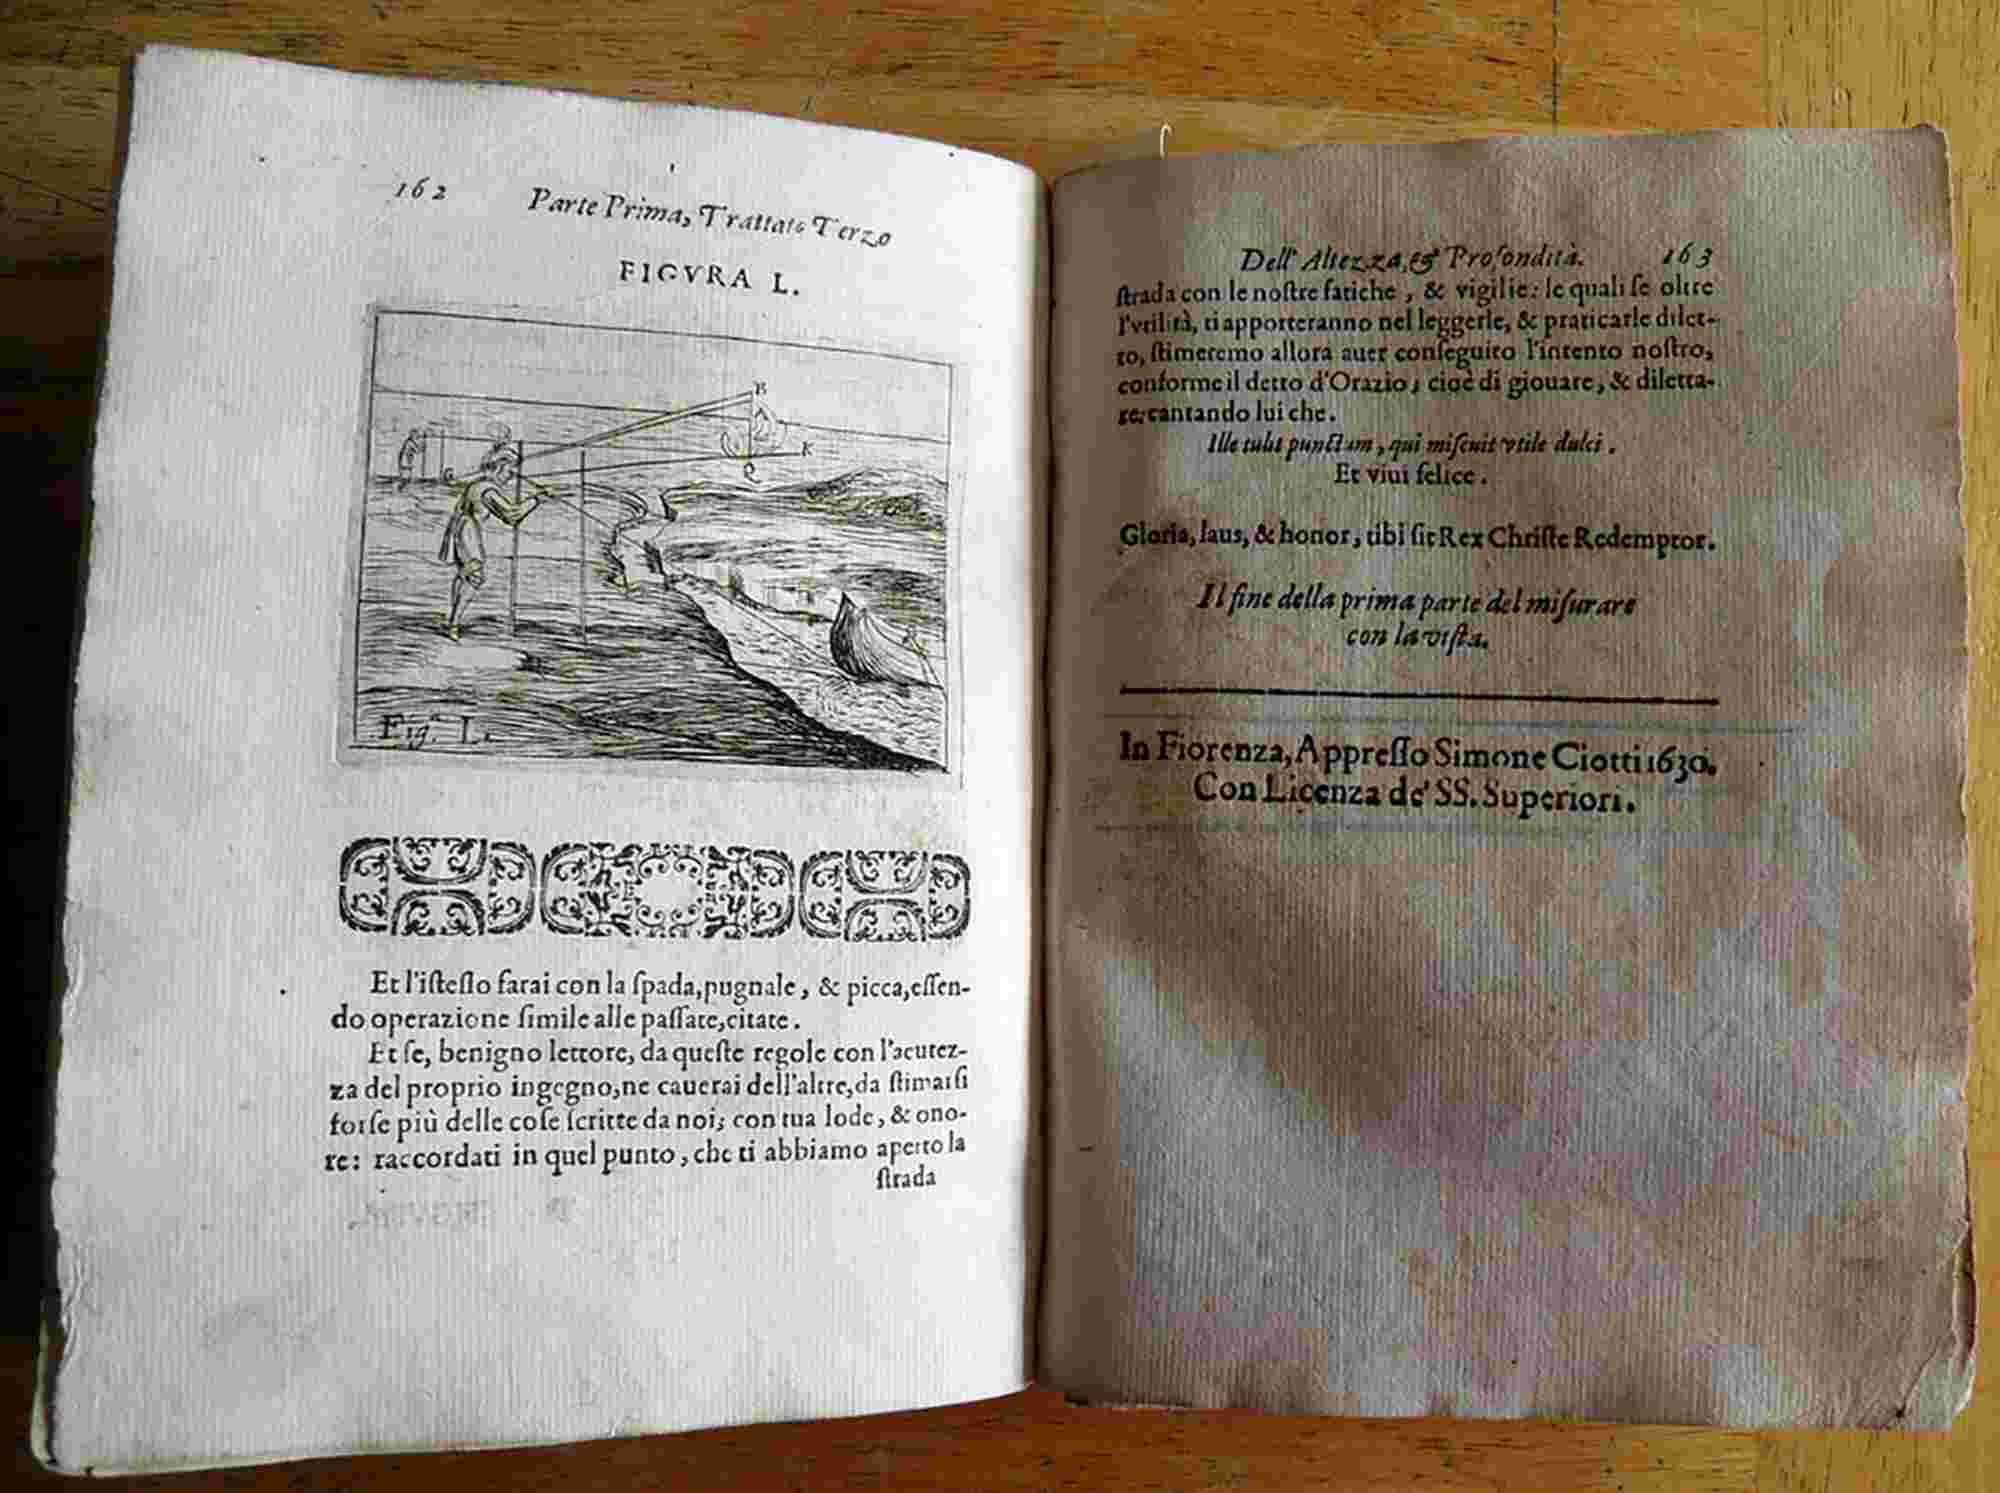 162 Parte Prima, Trattato Terzo
FIGVRA L.
B
K
Q
Fig.ᵃ L.
Et l'istesso farai con la spada, pugnale, & picca, essen-
do operazione simile alle passate, citate.
Et se, benigno lettore, da queste regole con l'acutez-
za del proprio ingegno, ne cauerai dell'altre, da stimarsi
forse più delle cose scritte da noi; con tua lode, & ono-
re: raccordati in quel punto, che ti abbiamo aperto la
strada
Dell' Altezza, & Profondità. 163
strada con le nostre fatiche, & vigilie: le quali se oltre
l'vtilità, ti apporteranno nel leggerle, & praticarle dilet-
to, stimeremo allora auer conseguito l'intento nostro,
conforme il detto d'Orazio, cioè di giouare, & diletta-
re: cantando lui che.
Ille tulit punctum, qui miscuit vtile dulci.
Et viui felice.
Gloria, laus, & honor, tibi sit Rex Christe Redemptor.
Il fine della prima parte del misurare
con la vista.
In Fiorenza, Appresso Simone Ciotti 1630.
Con Licenza de' SS. Superiori.